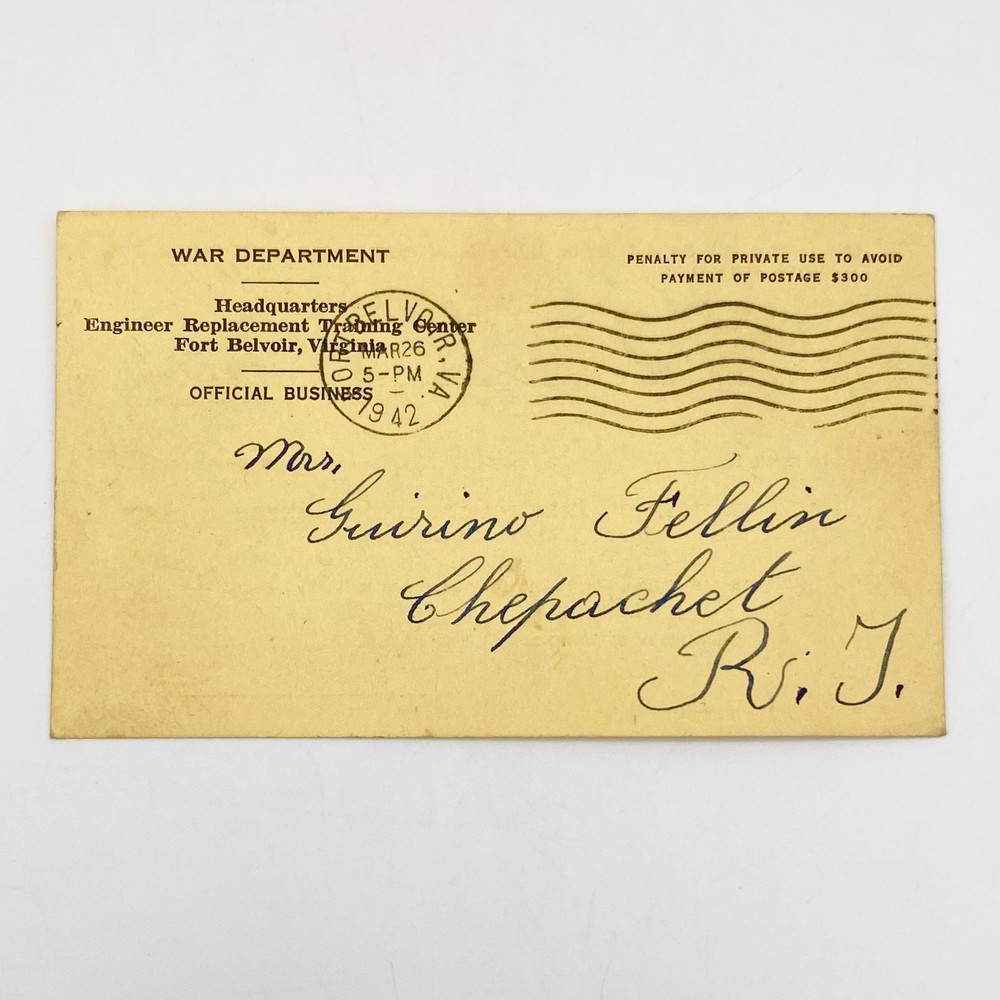 WAR DEPARTMENT
Headquarters
Engineer Replacement Training Center
Fort Belvoir, Virginia
OFFICIAL BUSINESS
PENALTY FOR PRIVATE USE TO AVOID
PAYMENT OF POSTAGE $300
FORT BELVOIR, VA.
MAR 26
5-PM
1942
Mrs.
Guirino Fellin
Chepachet
R. I.